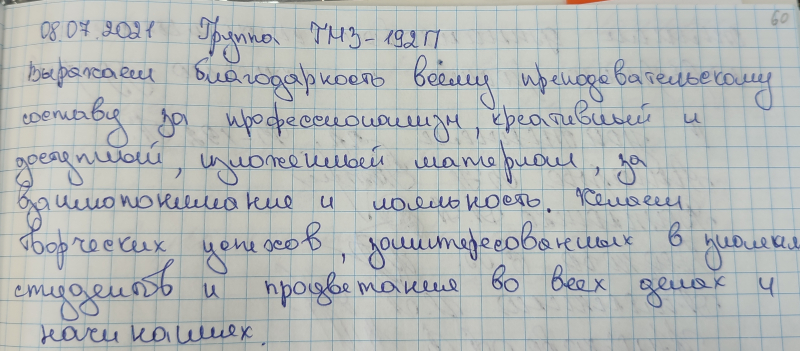 60
08.07.2021 Группа ТМЗ-192П
Выражаем благодарность всему преподавательскому
составу за профессионализм, креативный и
доступный, изложенный материал, за
взаимопонимание и лояльность. Желаем
творческих успехов, заинтересованных в знаниях
студентов и процветание во всех делах и
начинаниях.